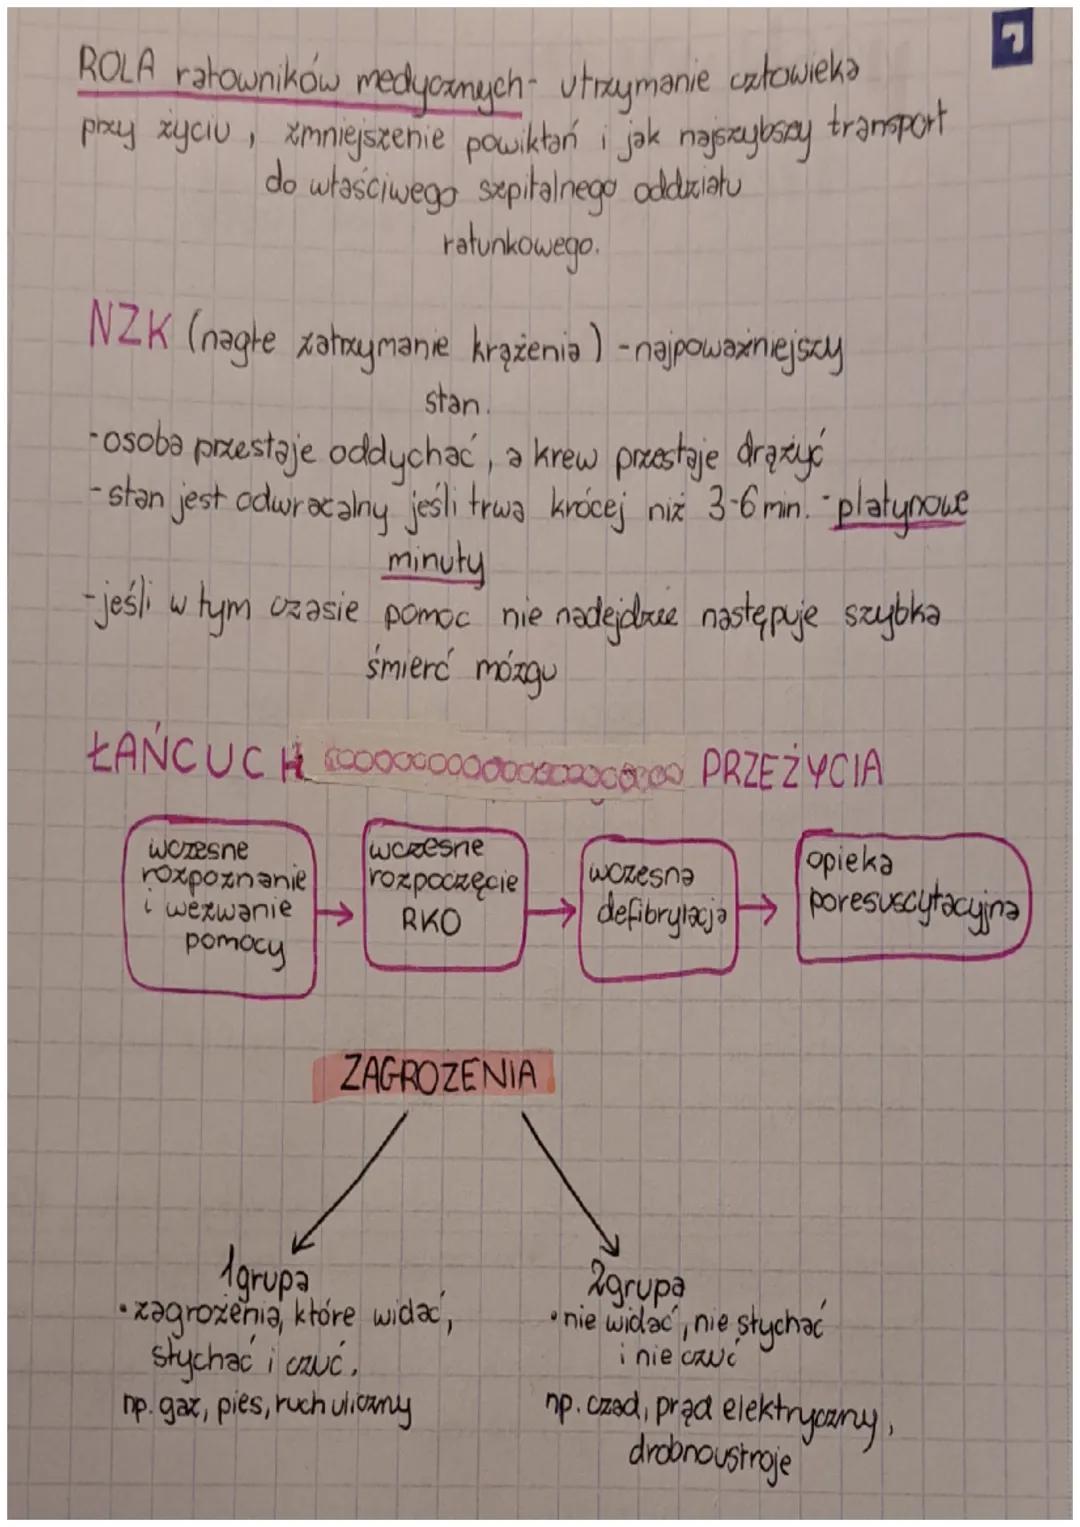 ROLA ratowników medycznych- utrzymanie człowieka
przy życiu, zmniejszenie powikłań i jak najszybszy transport
do właściwego szpitalnego oddziału
ratunkowego.
NZK (nagłe zatrzymanie krążenia) -najpoważniejszy
stan.
-osoba przestaje oddychać, a krew przestaje drążyć
-stan jest odwracalny jeśli trwa krócej niż 3-6 min. -platynowe
minuty
-jeśli w tym czasie pomoc nie nadejdzie następuje szybka
śmierć mózgu
ŁAŃCUCH PRZEŻYCIA
wczesne
rozpoznanie
i wezwanie
pomocy
wczesne
rozpoczęcie
RKO
wczesna
defibrylacja
opieka
poresuscytacyjna
ZAGROŻENIA
1grupa
•zagrożenia, które widać,
słychać i czuć.
np. gaz, pies, ruch uliczny
2grupa
•nie widać, nie słychać
i nie czuć
np. czad, prąd elektryczny,
drobnoustroje